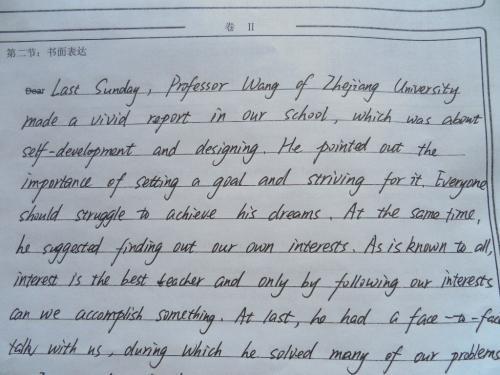 卷 II
第二节：书面表达
Dear Last Sunday, Professor Wang of Zhejiang University
made a vivid report in our school, which was about
self-development and designing. He pointed out the
importance of setting a goal and striving for it. Everyone
should struggle to achieve his dreams. At the same time,
he suggested finding out our own interests. As is known to all,
interest is the best teacher and only by following our interests
can we accomplish something. At last, he had a face-to-face
talk with us, during which he solved many of our problems